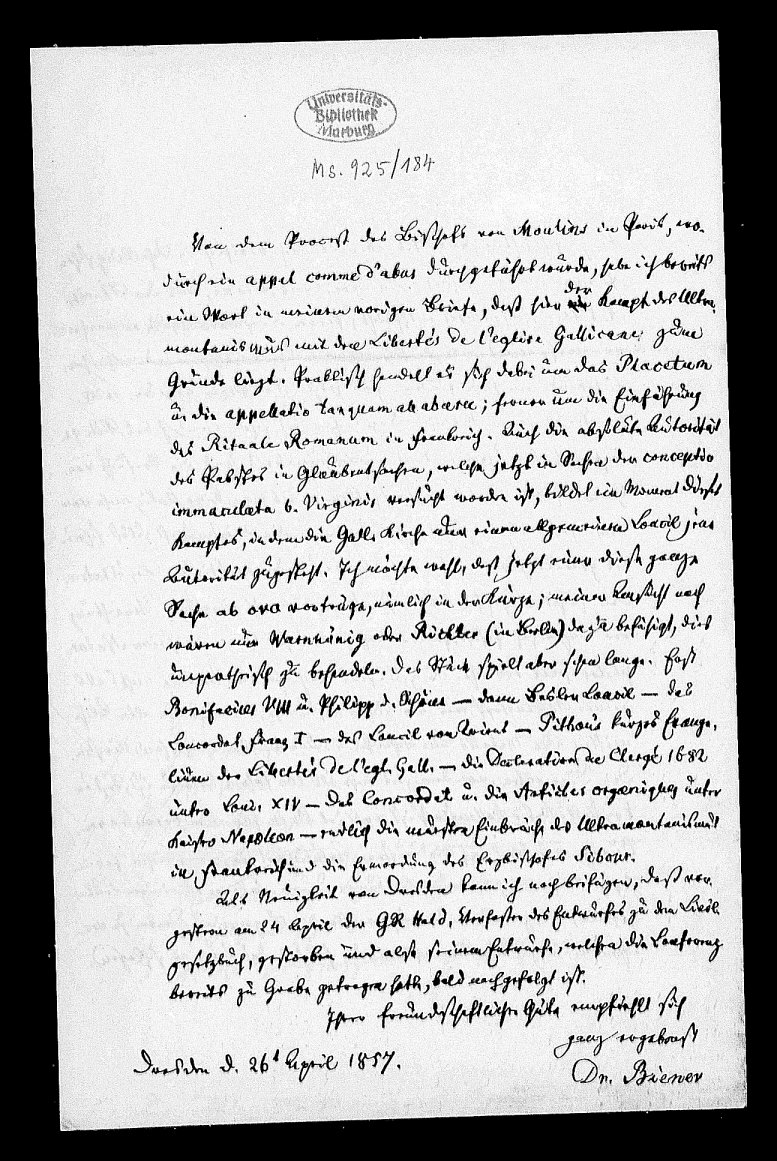 Universitäts-
Bibliothek
Marburg
Ms. 925/184
Von dem Proceß des Bischofs von Moulins in Paris, wo-
durch ein appel comme d'abus durchgeführt wurde, habe ich bereits
ein Wort in meinem vorigen Briefe, daß hier der Kampf des Ultra-
montanismus mit den Libertés de l'eglise Gallicane zum
Grunde liegt. Praktisch handelt es sich dabei um das Placetum
u. die appellatio tanquam ab abusu; ferner um die Einführung
des Rituale Romanum in Frankreich. Auch die absolute Autorität
des Pabstes in Glaubenssachen, welche jetzt in Sachen der conceptio
immaculata b. Virginis versucht worden ist, bildet ein Moment dieses
Kampfes, in dem die Gall. Kirche nur einem allgemeinen Concil jene
Autorität zugesteht. Ich möchte wohl, daß jetzt einer diese ganze
Sache ab ovo vortrüge, nämlich in der Kürze; meiner Ansicht nach
wären nur Warnkönig oder Richter (in Berlin) dazu befähigt, dies
unpartheiisch zu behandeln. Das Stück spielt aber schon lange. Erst
Bonifacius VIII u. Philipp d. Schöne — dann Basler Concil — das
Concordat Franz I — das Concil von Trient — Pithou's kurzes Evange-
lium der Libertés de l'egl. Gall. — die Declaration du Clergé 1682
unter Louis XIV — Das Concordat u. die Articles organiques unter
Kaiser Napoleon — endlich die neuesten Einbrüche des Ultramontanismus
in Frankreich und die Ermordung des Erzbischofes Sibour.
Als Neuigkeit von Dresden kann ich noch beifügen, daß vor-
gestern am 24 April der GR Held, Verfasser des Entwurfes zu dem Civil-
gesetzbuch, gestorben und also seinem Entwurfe, welchen die Conferenz
bereits zu Grabe getragen hatte, bald nachgefolgt ist.
Ihrer freundschaftlichen Güte empfiehlt sich
ganz ergebenst
Dresden d. 26t April 1857.
Dr. Biener